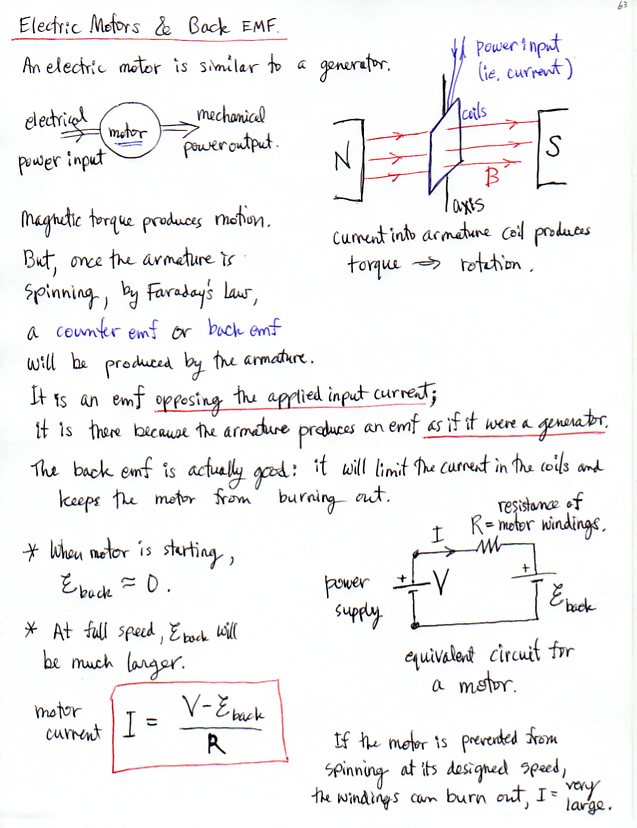 63
Electric Motors & Back EMF.
An electric motor is similar to a generator.
electrical
power input
motor
mechanical
power output.
power input
(ie. current)
coils
N
S
B
axis
current into armature coil produces
torque ⇒ rotation.
Magnetic torque produces motion.
But, once the armature is
spinning, by Faraday's Law,
a counter emf or back emf
will be produced by the armature.
It is an emf opposing the applied input current;
it is there because the armature produces an emf as if it were a generator.
The back emf is actually good: it will limit the current in the coils and
keeps the motor from burning out.
* When motor is starting,
Ɛback ≈ 0.
* At full speed, Ɛback will
be much larger.
motor
current
I = (V - Ɛback) / R
resistance of
R = motor windings.
I
power
supply
+
V
+
Ɛback
equivalent circuit for
a motor.
If the motor is prevented from
spinning at its designed speed,
the windings can burn out, I = very
large.